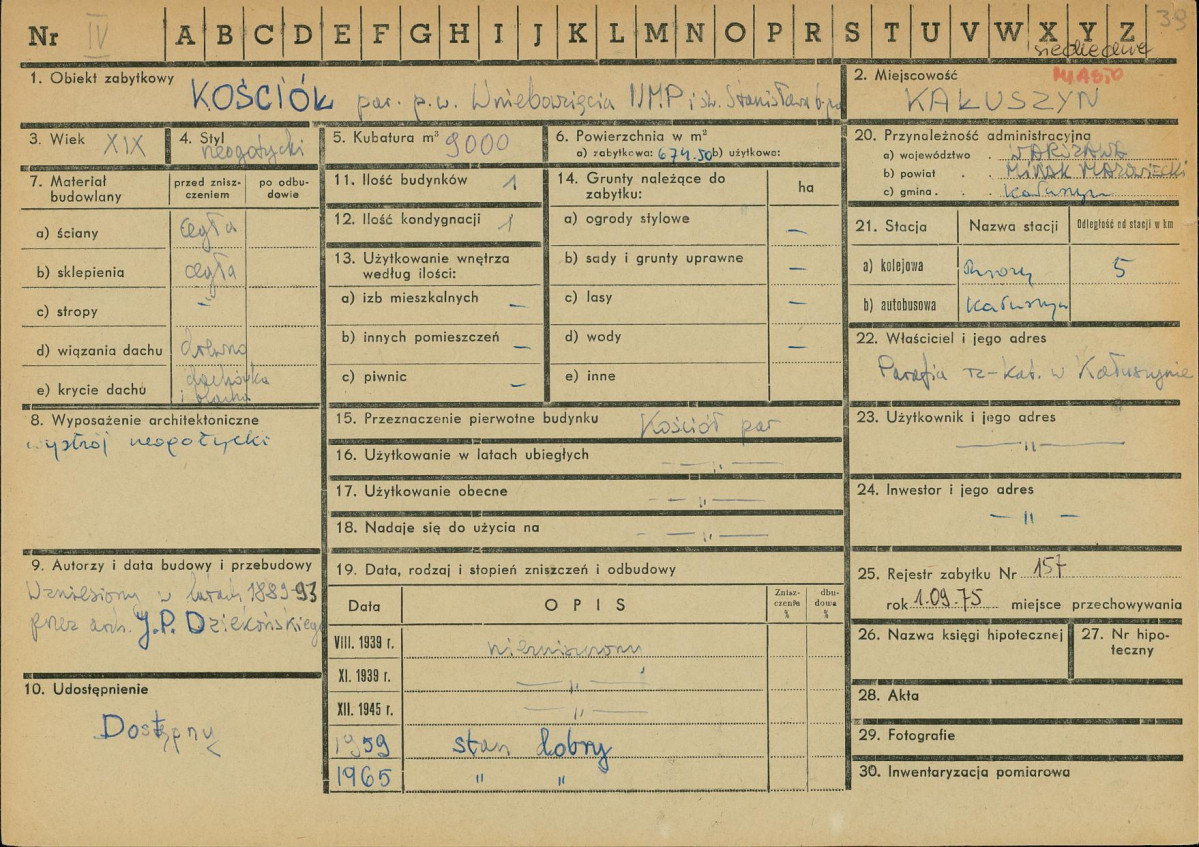 Nr IV A B C D E F G H I J K L M N O P R S T U V W X Y Z 39
siedleckie
1. Obiekt zabytkowy KOŚCIÓŁ par. p.w. Wniebowzięcia NMP i św. Stanisława b.
2. Miejscowość MIASTO
KAŁUSZYN
3. Wiek XIX
4. Styl neogotycki
5. Kubatura m³ 9000
6. Powierzchnia w m²
a) zabytkowa: 674.50 b) użytkowo:
20. Przynależność administracyjna
a) województwo WARSZAWA
b) powiat MIŃSK MAZOWIECKI
c) gmina Kałuszyn
7. Materiał budowlany
przed znisz-
czeniem
po odbu-
dowie
a) ściany cegła
b) sklepienia cegła
c) stropy "
d) wiązania dachu drewno
e) krycie dachu dachówka
i blacha
11. Ilość budynków 1
12. Ilość kondygnacji 1
13. Użytkowanie wnętrza
według ilości:
a) izb mieszkalnych —
b) innych pomieszczeń —
c) piwnic —
14. Grunty należące do
zabytku:
ha
a) ogrody stylowe —
b) sady i grunty uprawne —
c) lasy —
d) wody —
e) inne
21. Stacja Nazwa stacji Odległość od stacji w km
a) kolejowa Mrozy 5
b) autobusowa Kałuszyn
22. Właściciel i jego adres
Parafia rz-kat. w Kałuszynie
8. Wyposażenie architektoniczne
wystrój neogotycki
15. Przeznaczenie pierwotne budynku Kościół par
16. Użytkowanie w latach ubiegłych — " —
17. Użytkowanie obecne — " —
18. Nadaje się do użycia na — " —
23. Użytkownik i jego adres
— " —
24. Inwestor i jego adres
— " —
9. Autorzy i data budowy i przebudowy
Wzniesiony w latach 1889-93
przez arch. J.P. Dziekońskiego
10. Udostępnienie
Dostępny
19. Data, rodzaj i stopień zniszczeń i odbudowy
Data OPIS
Znisz-
czenie
%
dbu-
dowa
%
VIII. 1939 r. niezniszczony
XI. 1939 r. — " —
XII. 1945 r. — " —
1959 stan dobry
1965 " "
25. Rejestr zabytku Nr 157
rok 1.09.75 miejsce przechowywania
26. Nazwa księgi hipotecznej
27. Nr hipo-
teczny
28. Akta
29. Fotografie
30. Inwentaryzacja pomiarowa